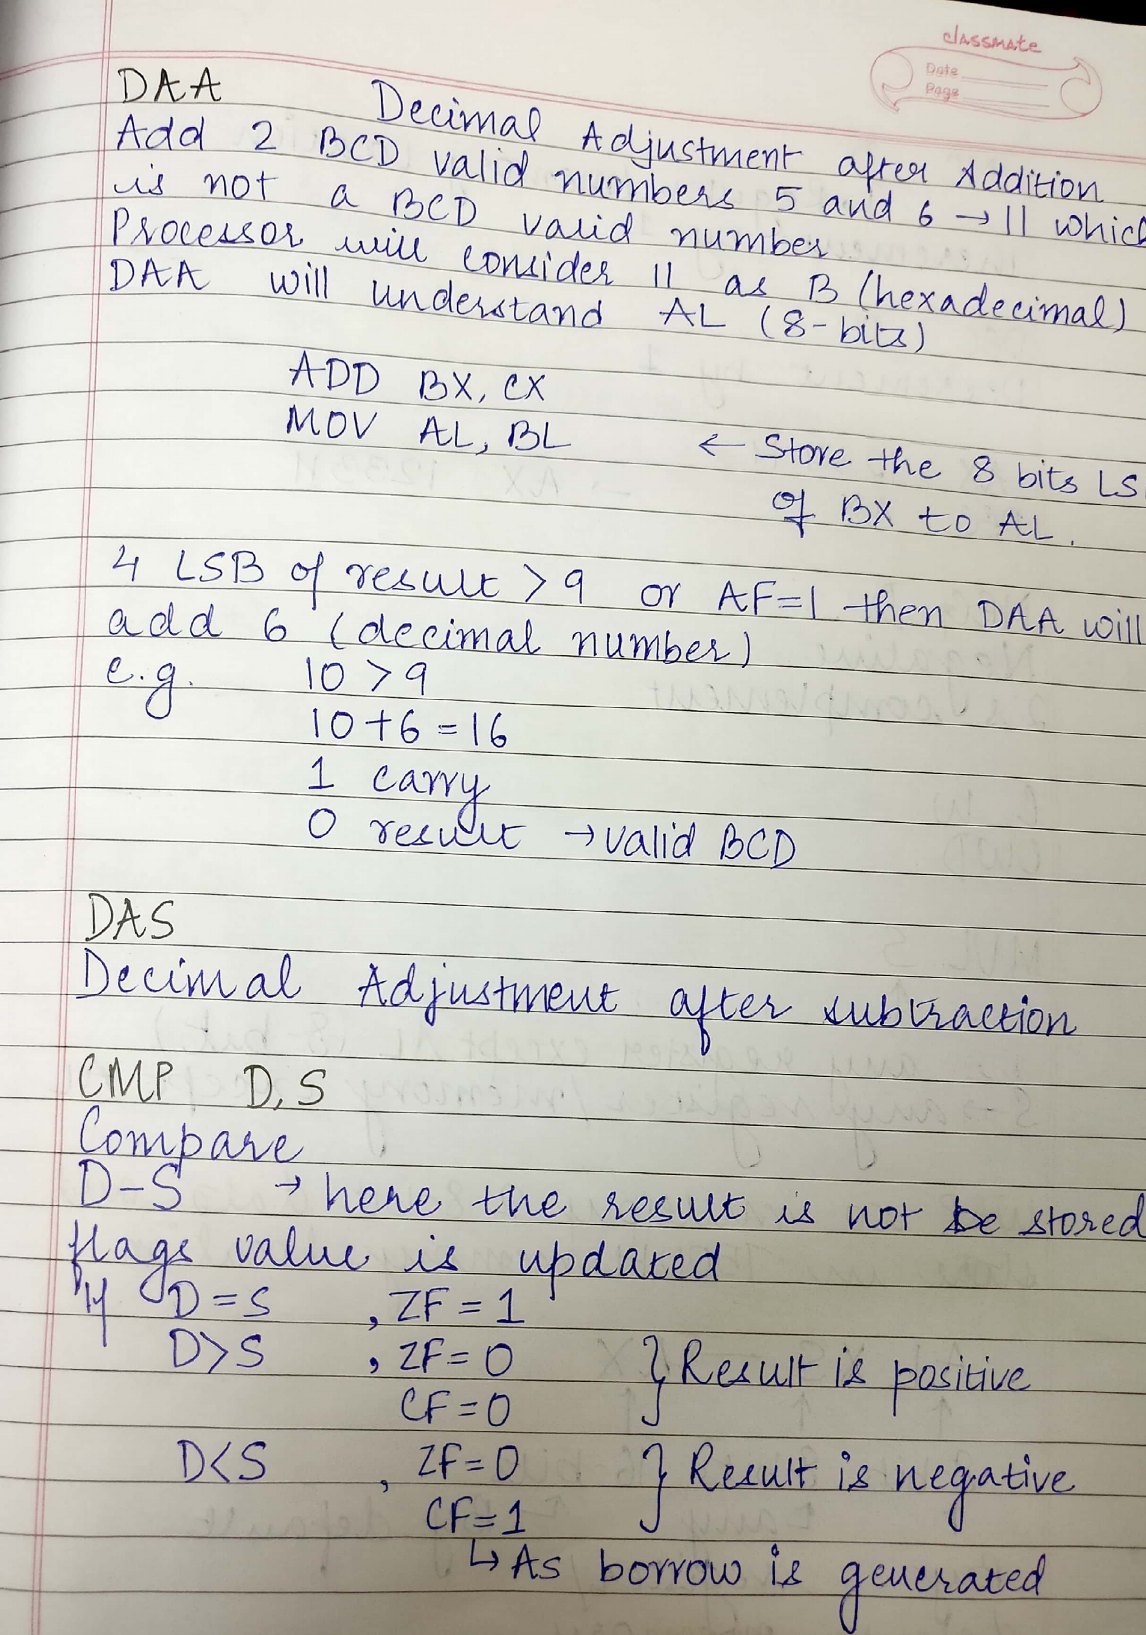 classmate
Date
Page
DAA Decimal Adjustment after Addition
Add 2 BCD valid numbers 5 and 6 → 11 which
is not a BCD valid number
Processor will consider 11 as B (hexadecimal)
DAA will understand AL (8-bits)
ADD BX, CX
MOV AL, BL ← Store the 8 bits LS
of BX to AL.
4 LSB of result > 9 or AF=1 then DAA will
add 6 (decimal number)
e.g. 10 > 9
10+6 = 16
1 carry
0 result → valid BCD
DAS
Decimal Adjustment after subtraction
CMP D, S
Compare
D-S → here the result is not be stored
flags value is updated
If D = S , ZF = 1
D>S , ZF = 0 } Result is positive
CF = 0
D<S , ZF = 0 } Result is negative
CF = 1
↳ As borrow is generated